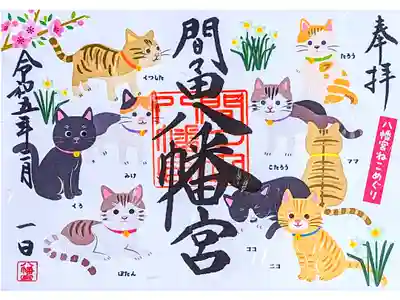 奉拝
八幡宮ねこめぐり
間々田八幡宮
令和五年二月
一日
くつした
たろう
みけ
こたろう
ママ
くろ
ぼたん
ココ
ニコ